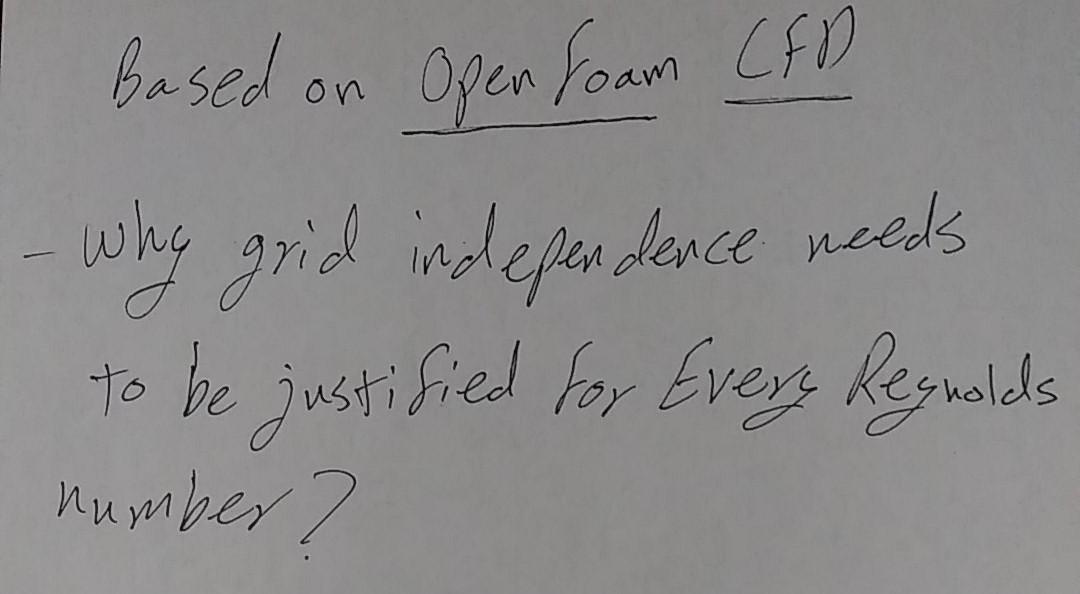 Based on Open foam CFD
- Why grid independence needs
to be justified for Every Reynolds
number?